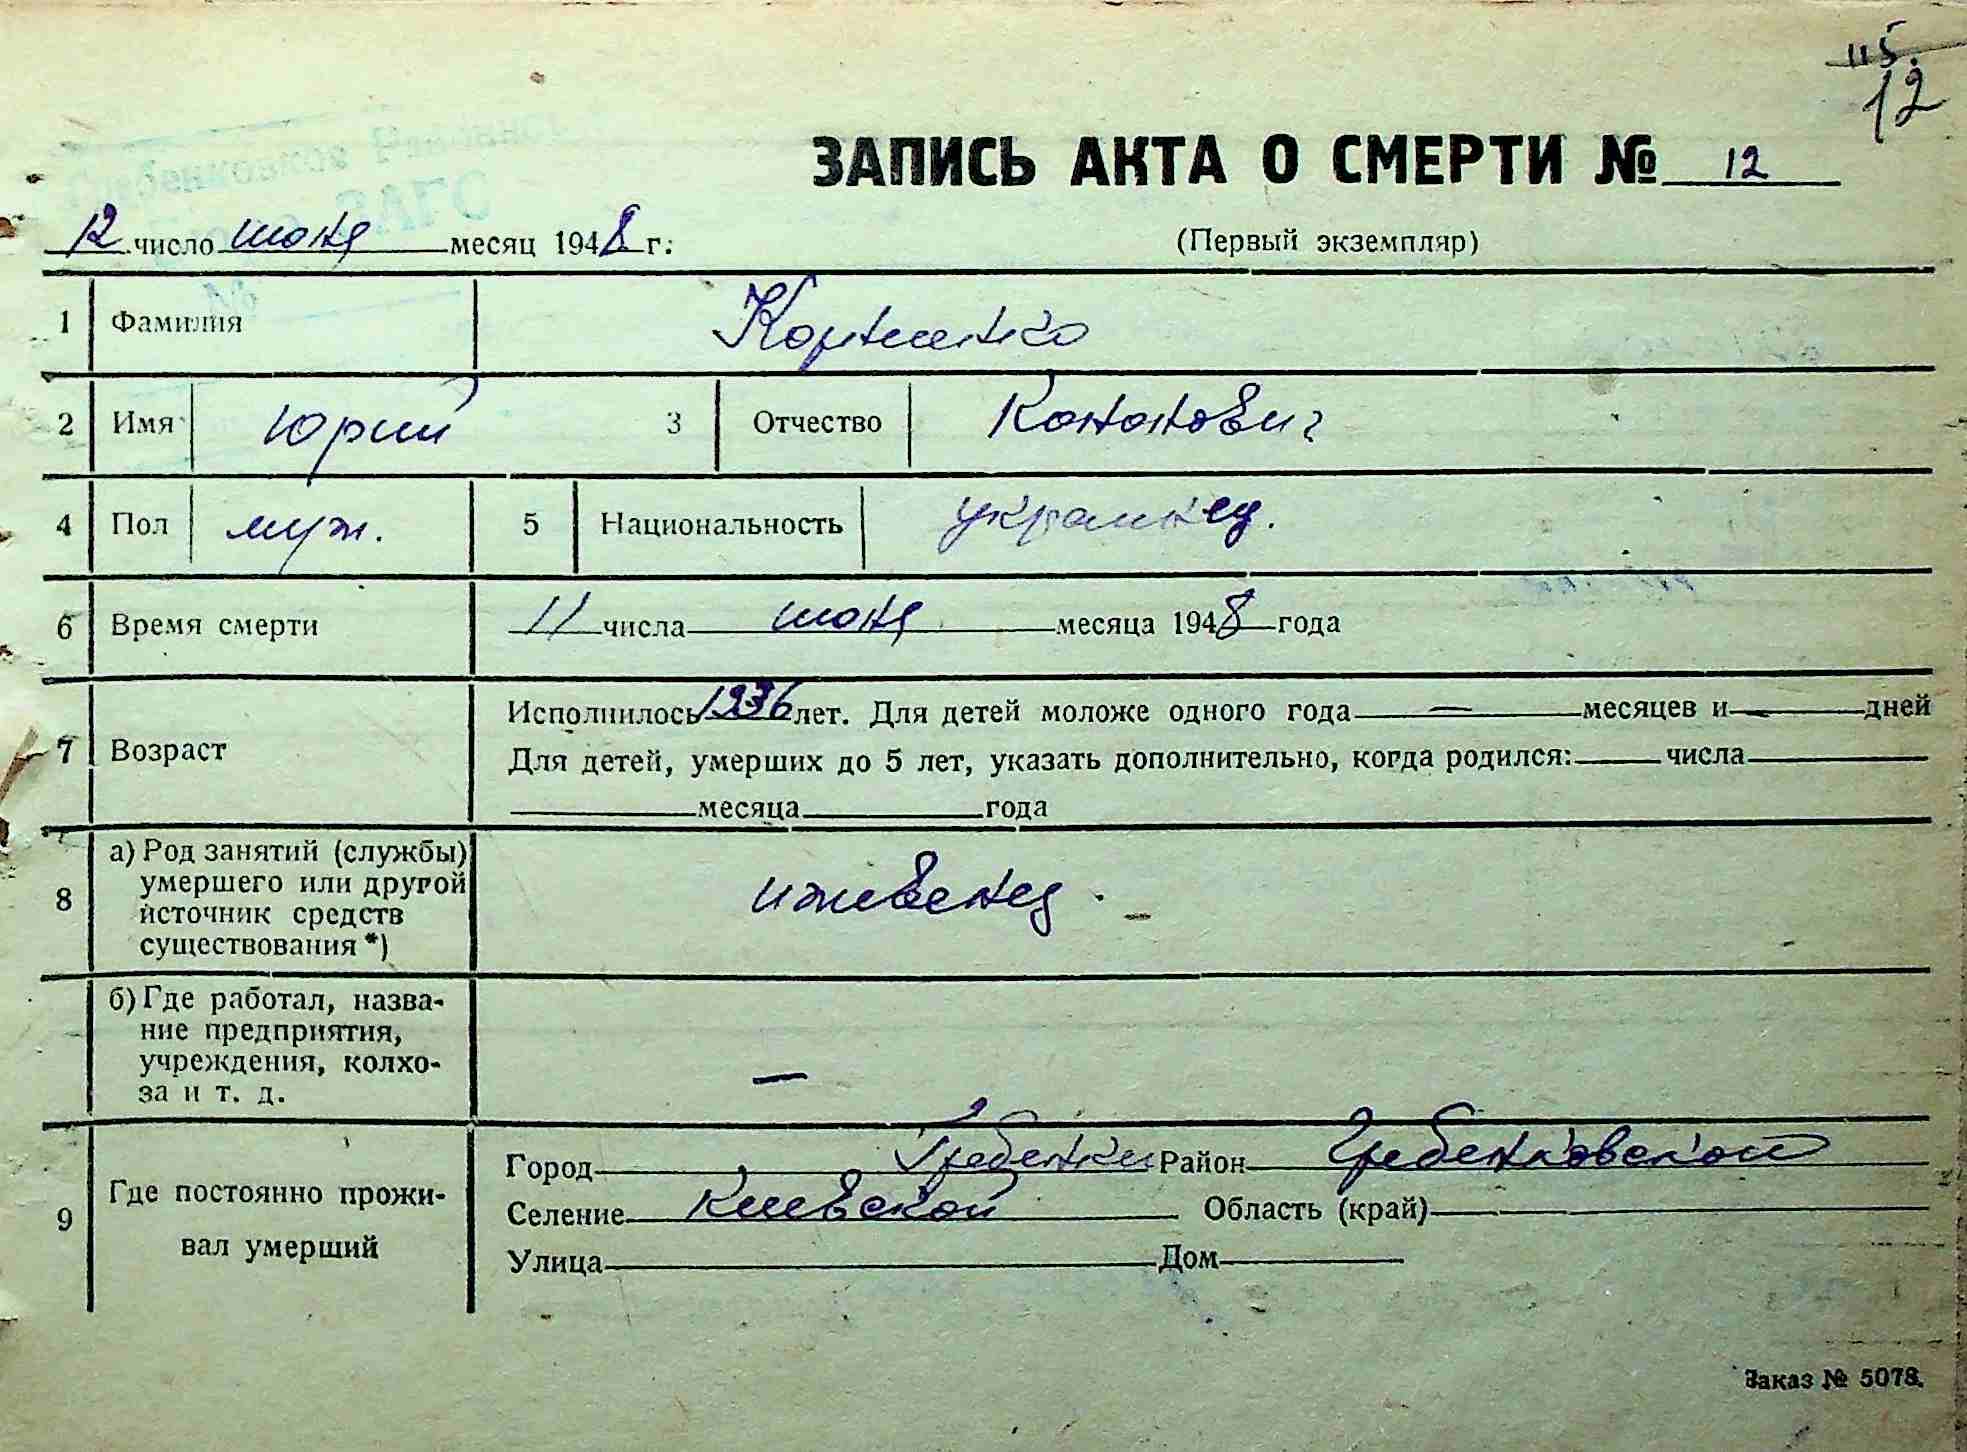 115.
12
Гребенковское Районное
ЗАГС
ЗАПИСЬ АКТА О СМЕРТИ № 12
12 число июня месяц 1948 г.
(Первый экземпляр)
№
1 Фамилия Корниенко
2 Имя Юрий 3 Отчество Кононович
4 Пол муж. 5 Национальность украинец.
6 Время смерти 11 числа июня месяца 1948 года
7 Возраст Исполнилось 1936 лет. Для детей моложе одного года — месяцев и — дней
Для детей, умерших до 5 лет, указать дополнительно, когда родился: числа
месяца года
8 а) Род занятий (службы) умершего или другой источник средств существования *) ижевенец.
б) Где работал, название предприятия, учреждения, колхоза и т. д. —
9 Где постоянно проживал умерший
Город Гребенки Район Гребенковской
Селение Киевской Область (край)
Улица Дом
Заказ № 5078.